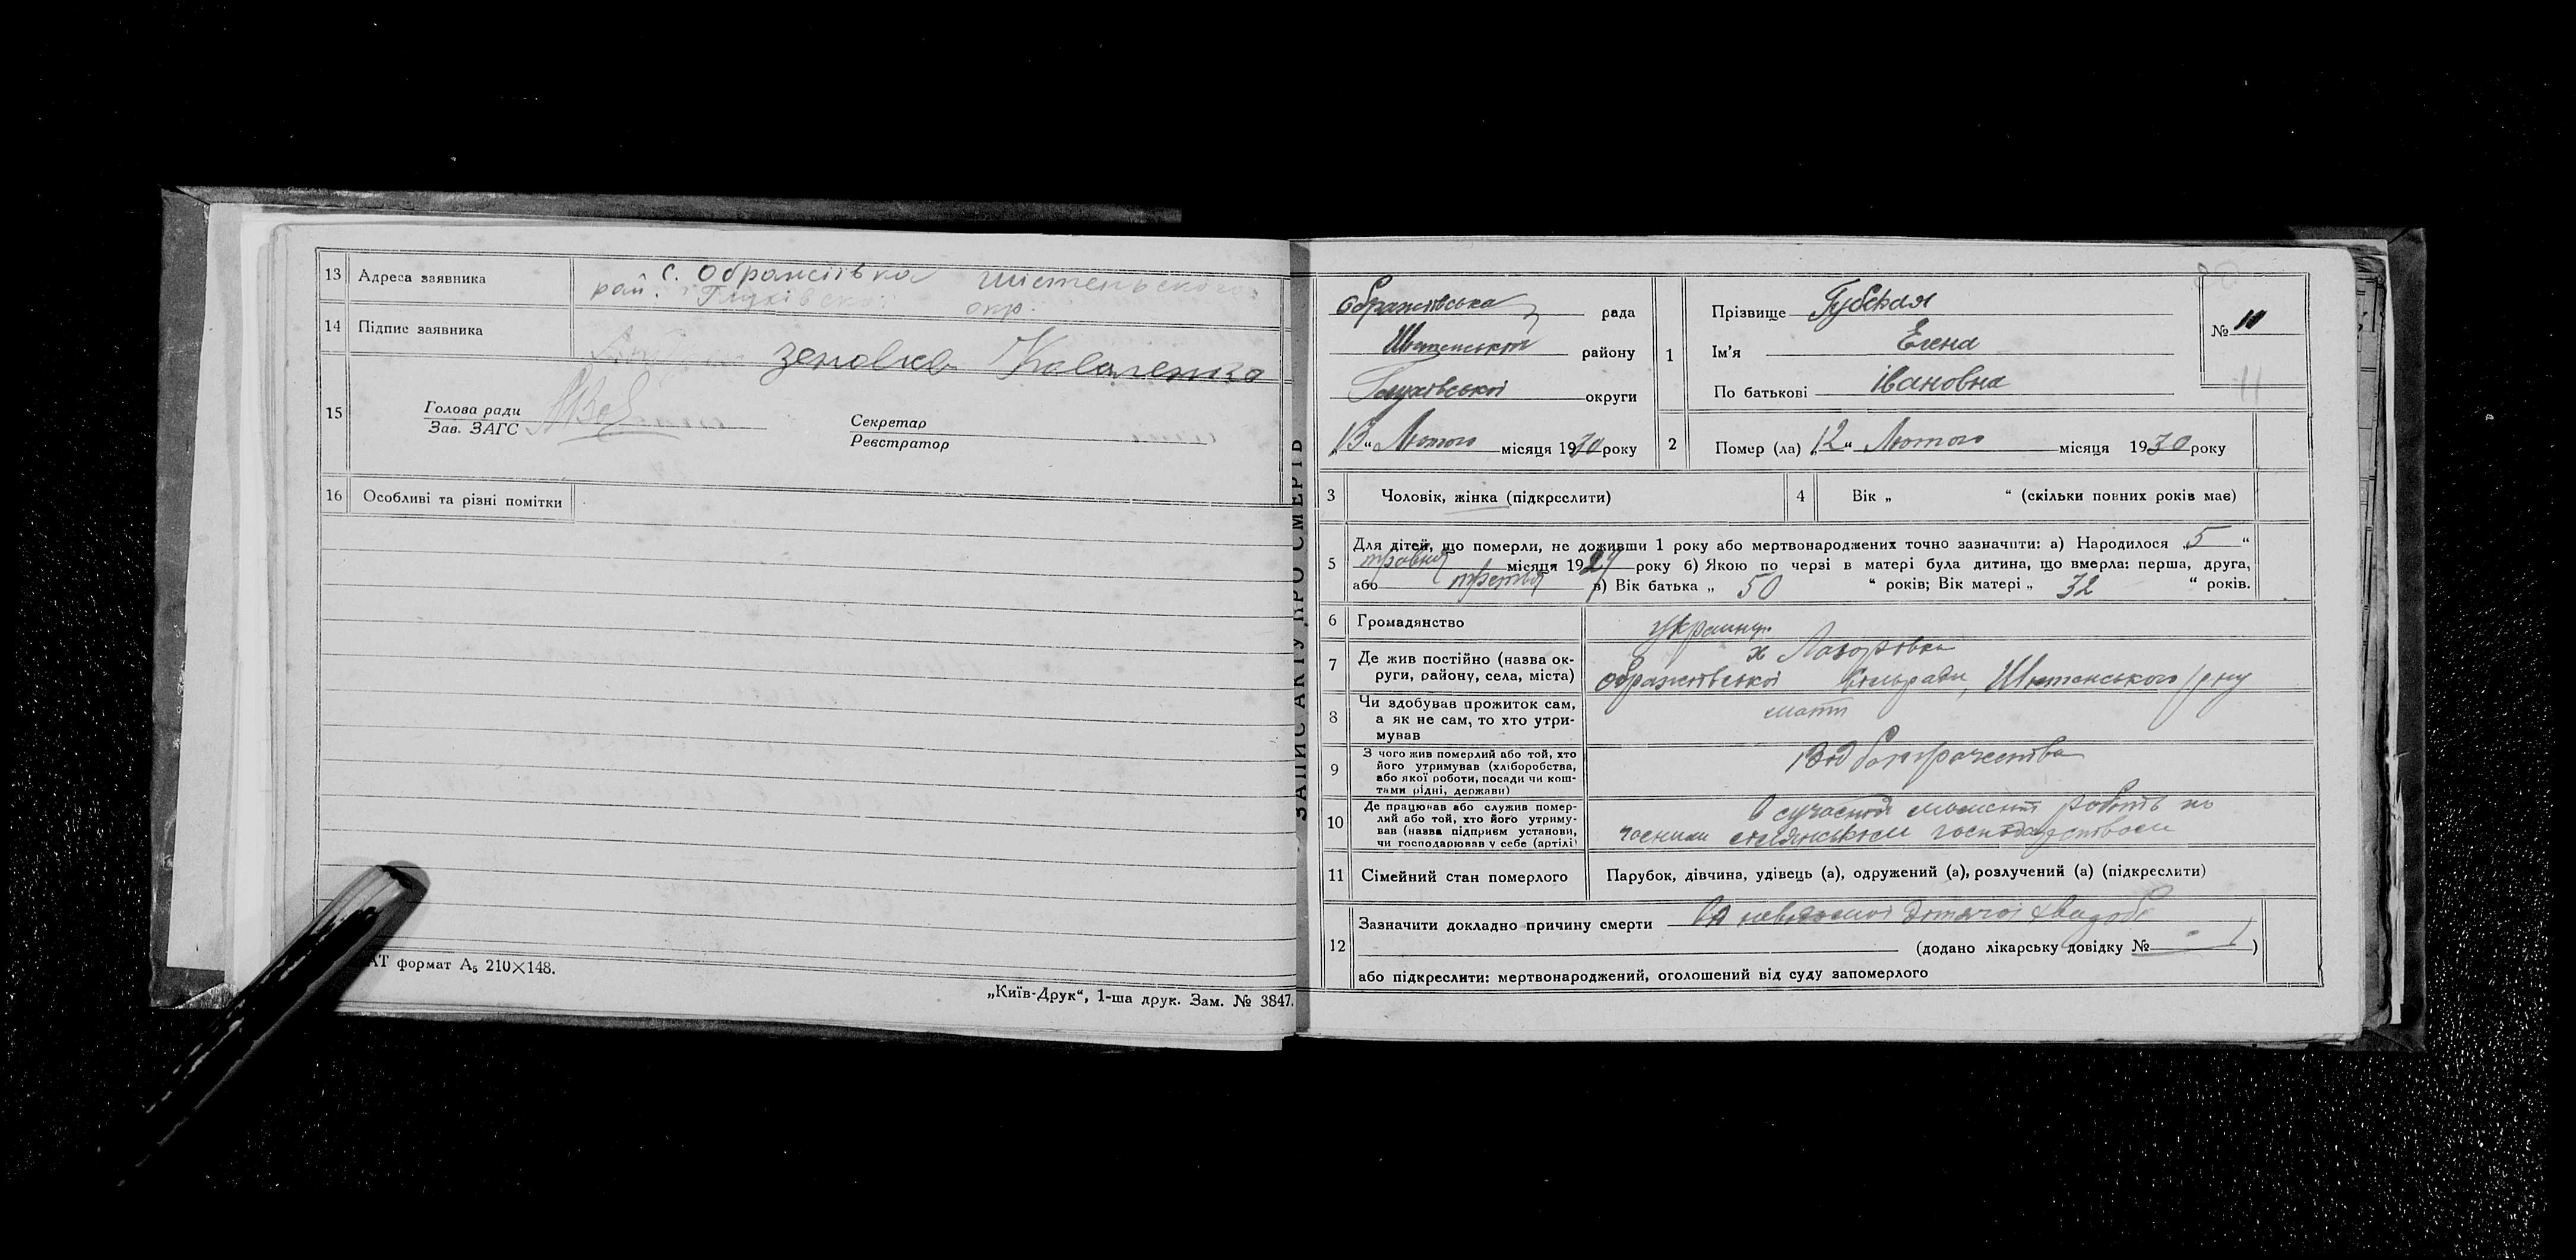 13 Адреса заявника с. Ображіївка Шістенського
рай. Глухівської окр.
14 Підпис заявника
зеновка Коваленко
15
Голова ради
Зав. ЗАГС
Секретар
Реєстратор
16 Особливі та різні помітки
АТ формат А₅ 210×148.
„Київ-Друк“, 1-ша друк. Зам. № 3847.
ЗАПИС АКТУ ПРО СМЕРТЬ
Ображіївська рада
району
Глухівської округи
13 “ Лютого місяця 1930 року
1
Прізвище Губская
Ім’я Елена
По батькові івановна
№ 11
11
2 Помер (ла) 12 “ Лютого місяця 1930 року
3 Чоловік, жінка (підкреслити)
4 Вік „ “ (скільки повних років має)
5 Для дітей, що померли, не доживши 1 року або мертвонароджених точно зазначити: а) Народилося „ 5 “
травня місяця 1927 року б) Якою по черзі в матері була дитина, що вмерла: перша, друга,
або третя в) Вік батька „ 50 “ років; Вік матері „ 32 “ років.
6 Громадянство Украинц.
7 Де жив постійно (назва округи, району, села, міста) х Лазоровка
Ображіївської сільради, Шістенського р/ну
8 Чи здобував прожиток сам,
а як не сам, то хто утри-
мував
мати
9 З чого жив померлий або той, хто
його утримував (хліборобства,
або якої роботи, посади чи кош-
тами рідні, держави)
Від
10 Де працював або служив помер-
лий або той, хто його утриму-
вав (назва підприєм установи,
чи господарював у себе (артілі)
В сучасний момент робить
селянським господарством
11 Сімейний стан померлого Парубок, дівчина, удівець (а), одружений (а), розлучений (а) (підкреслити)
12 Зазначити докладно причину смерти Од невідомої дитячої хвороби
(додано лікарську довідку № - )
або підкреслити: мертвонароджений, оголошений від суду запомерлого